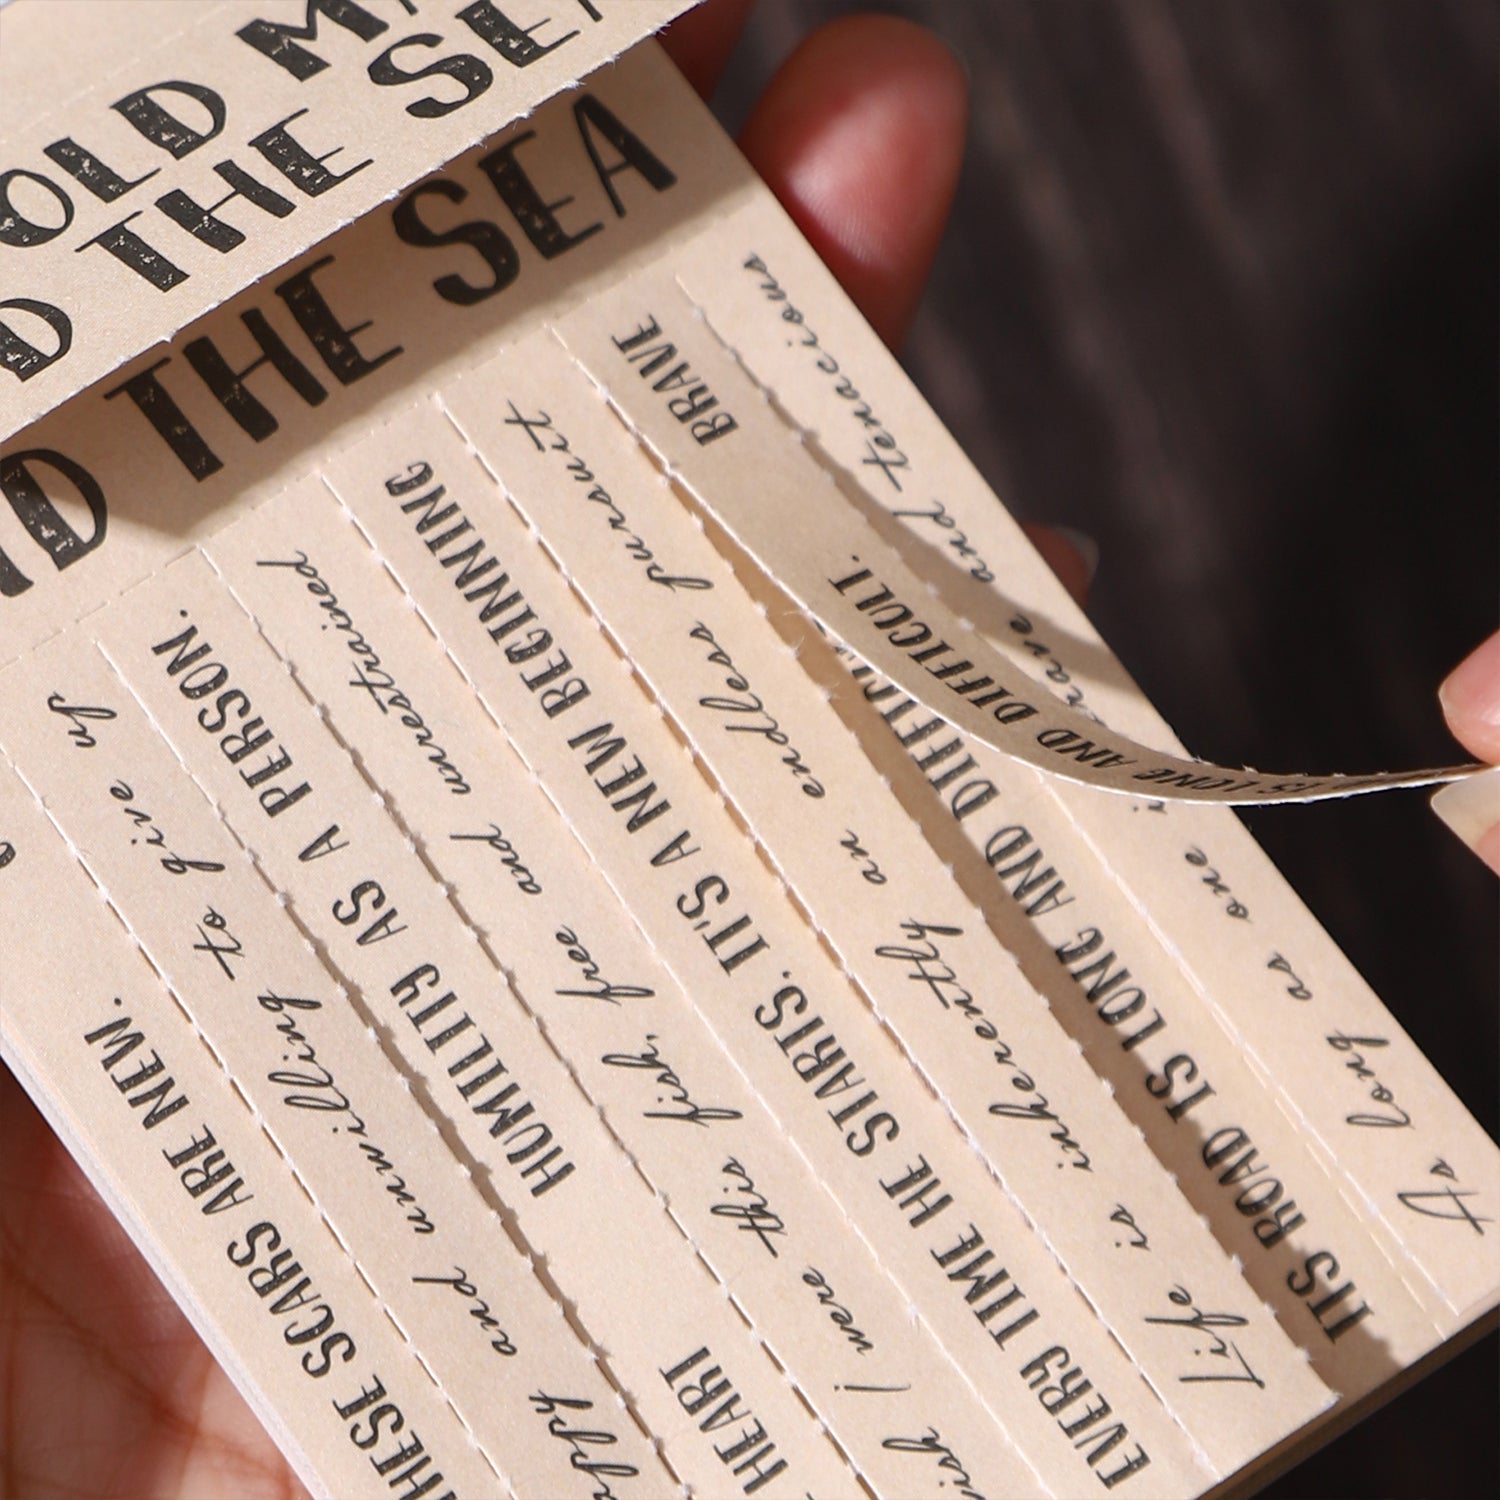 OLD
D THE SEA
D THE SEA
up
to give
and unwilling
appy
THESE SCARS ARE NEW.
HUMILITY AS A PERSON.
HEART
ish I were this fish, free and unrestrained
EVERY TIME HE STARTS, IT'S A NEW BEGINNING
Life is inherently an endless pursuit
ITS ROAD IS LONG AND DIFFICUL
BRAVE
IS LONG AND DIFFICULT.
As long as one i
rave and tenacious